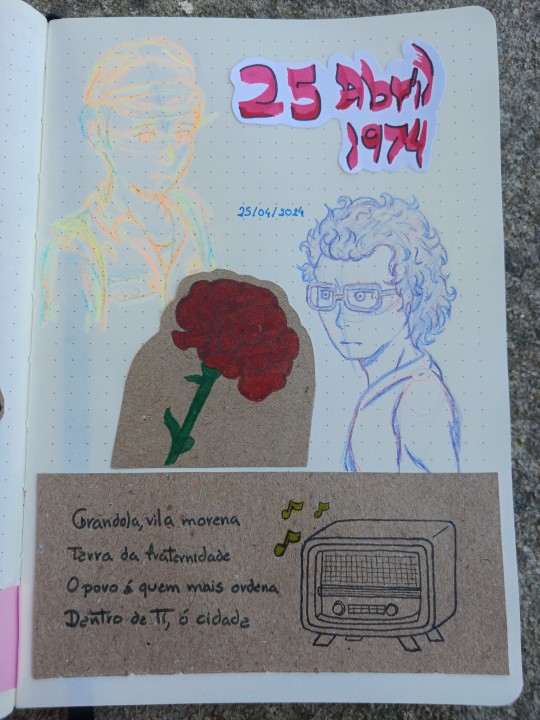 25 Abril
1974
25/04/2024
Grândola, vila morena
Terra da fraternidade
O povo é quem mais ordena
Dentro de Ti, ó cidade